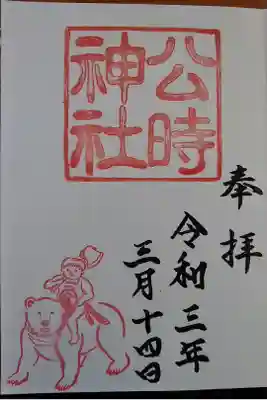 公時
神社
奉拝
令和三年
三月十四日